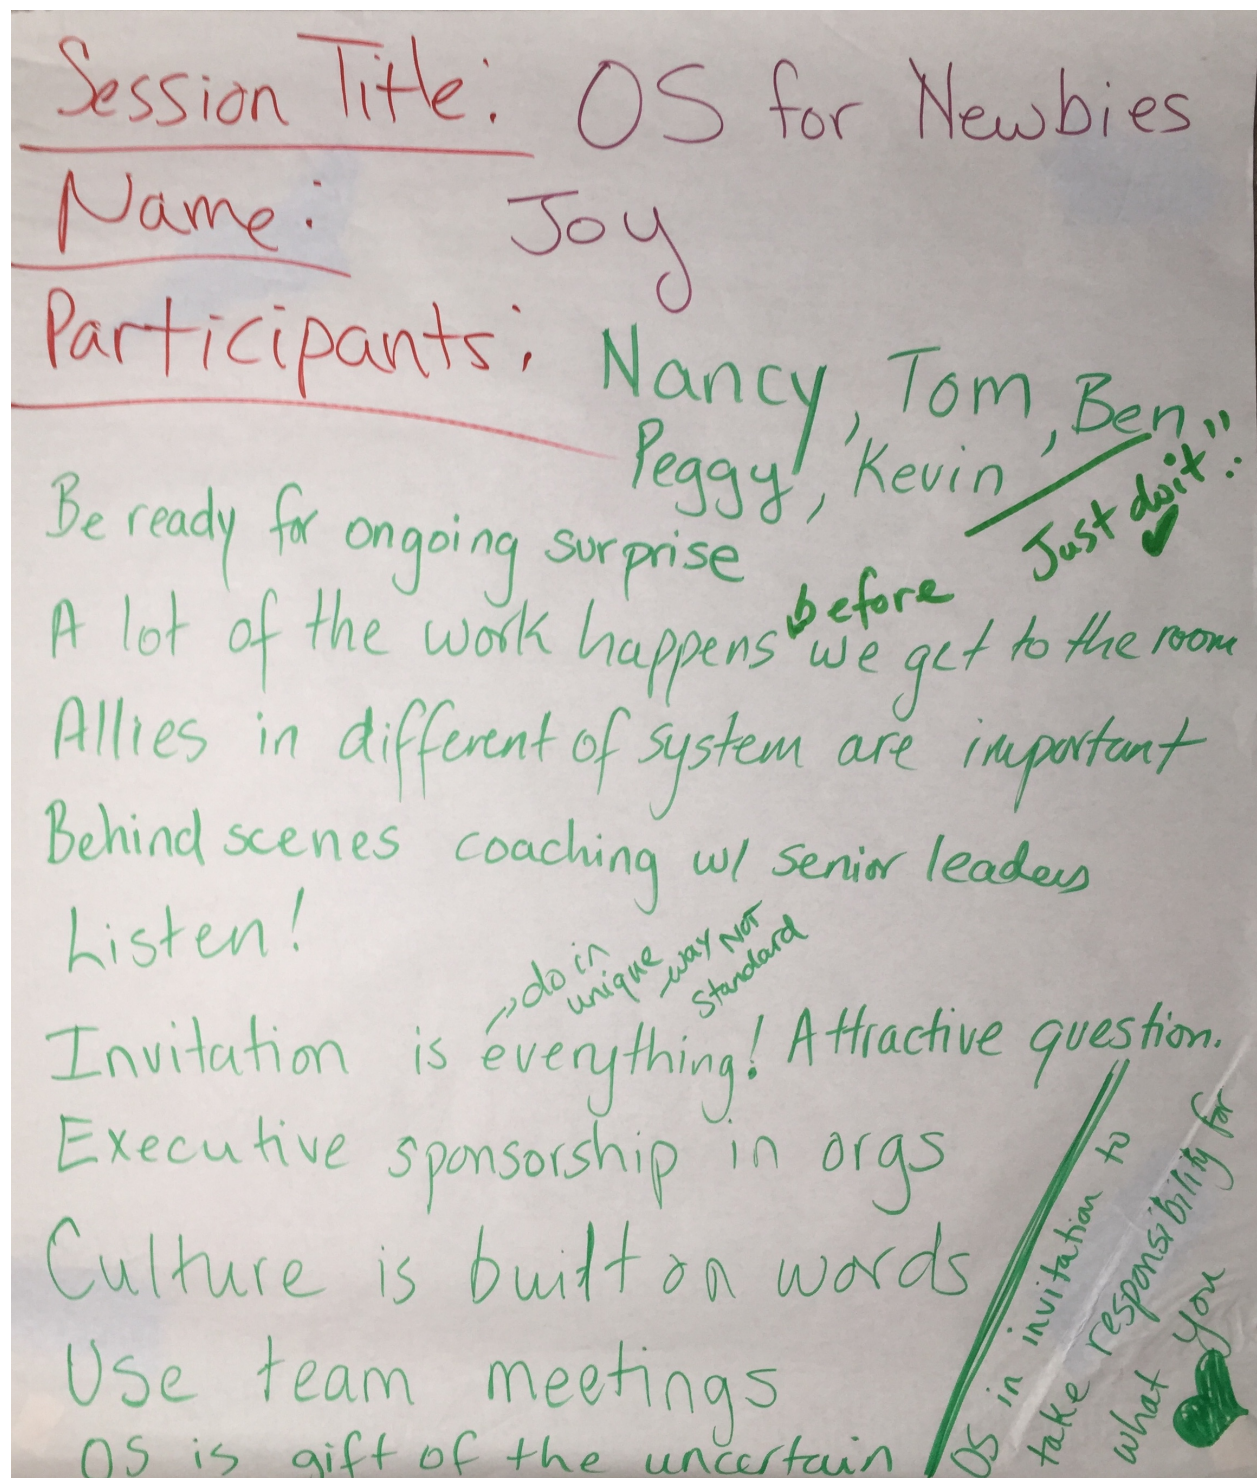 Session Title: OS for Newbies
Name: Joy
Participants: Nancy, Tom, Ben
Peggy, Kevin
Just do it"!
Be ready for ongoing surprise
before
A lot of the work happens we get to the room
Allies in different of system are important
Behind scenes coaching w/ senior leaders
Listen!
do in
unique way NOT
standard
Invitation is everything! Attractive question.
Executive sponsorship in orgs
Culture is built on words
Use team meetings
OS is gift of the uncertain
OS in invitation to
take responsibility for
what you